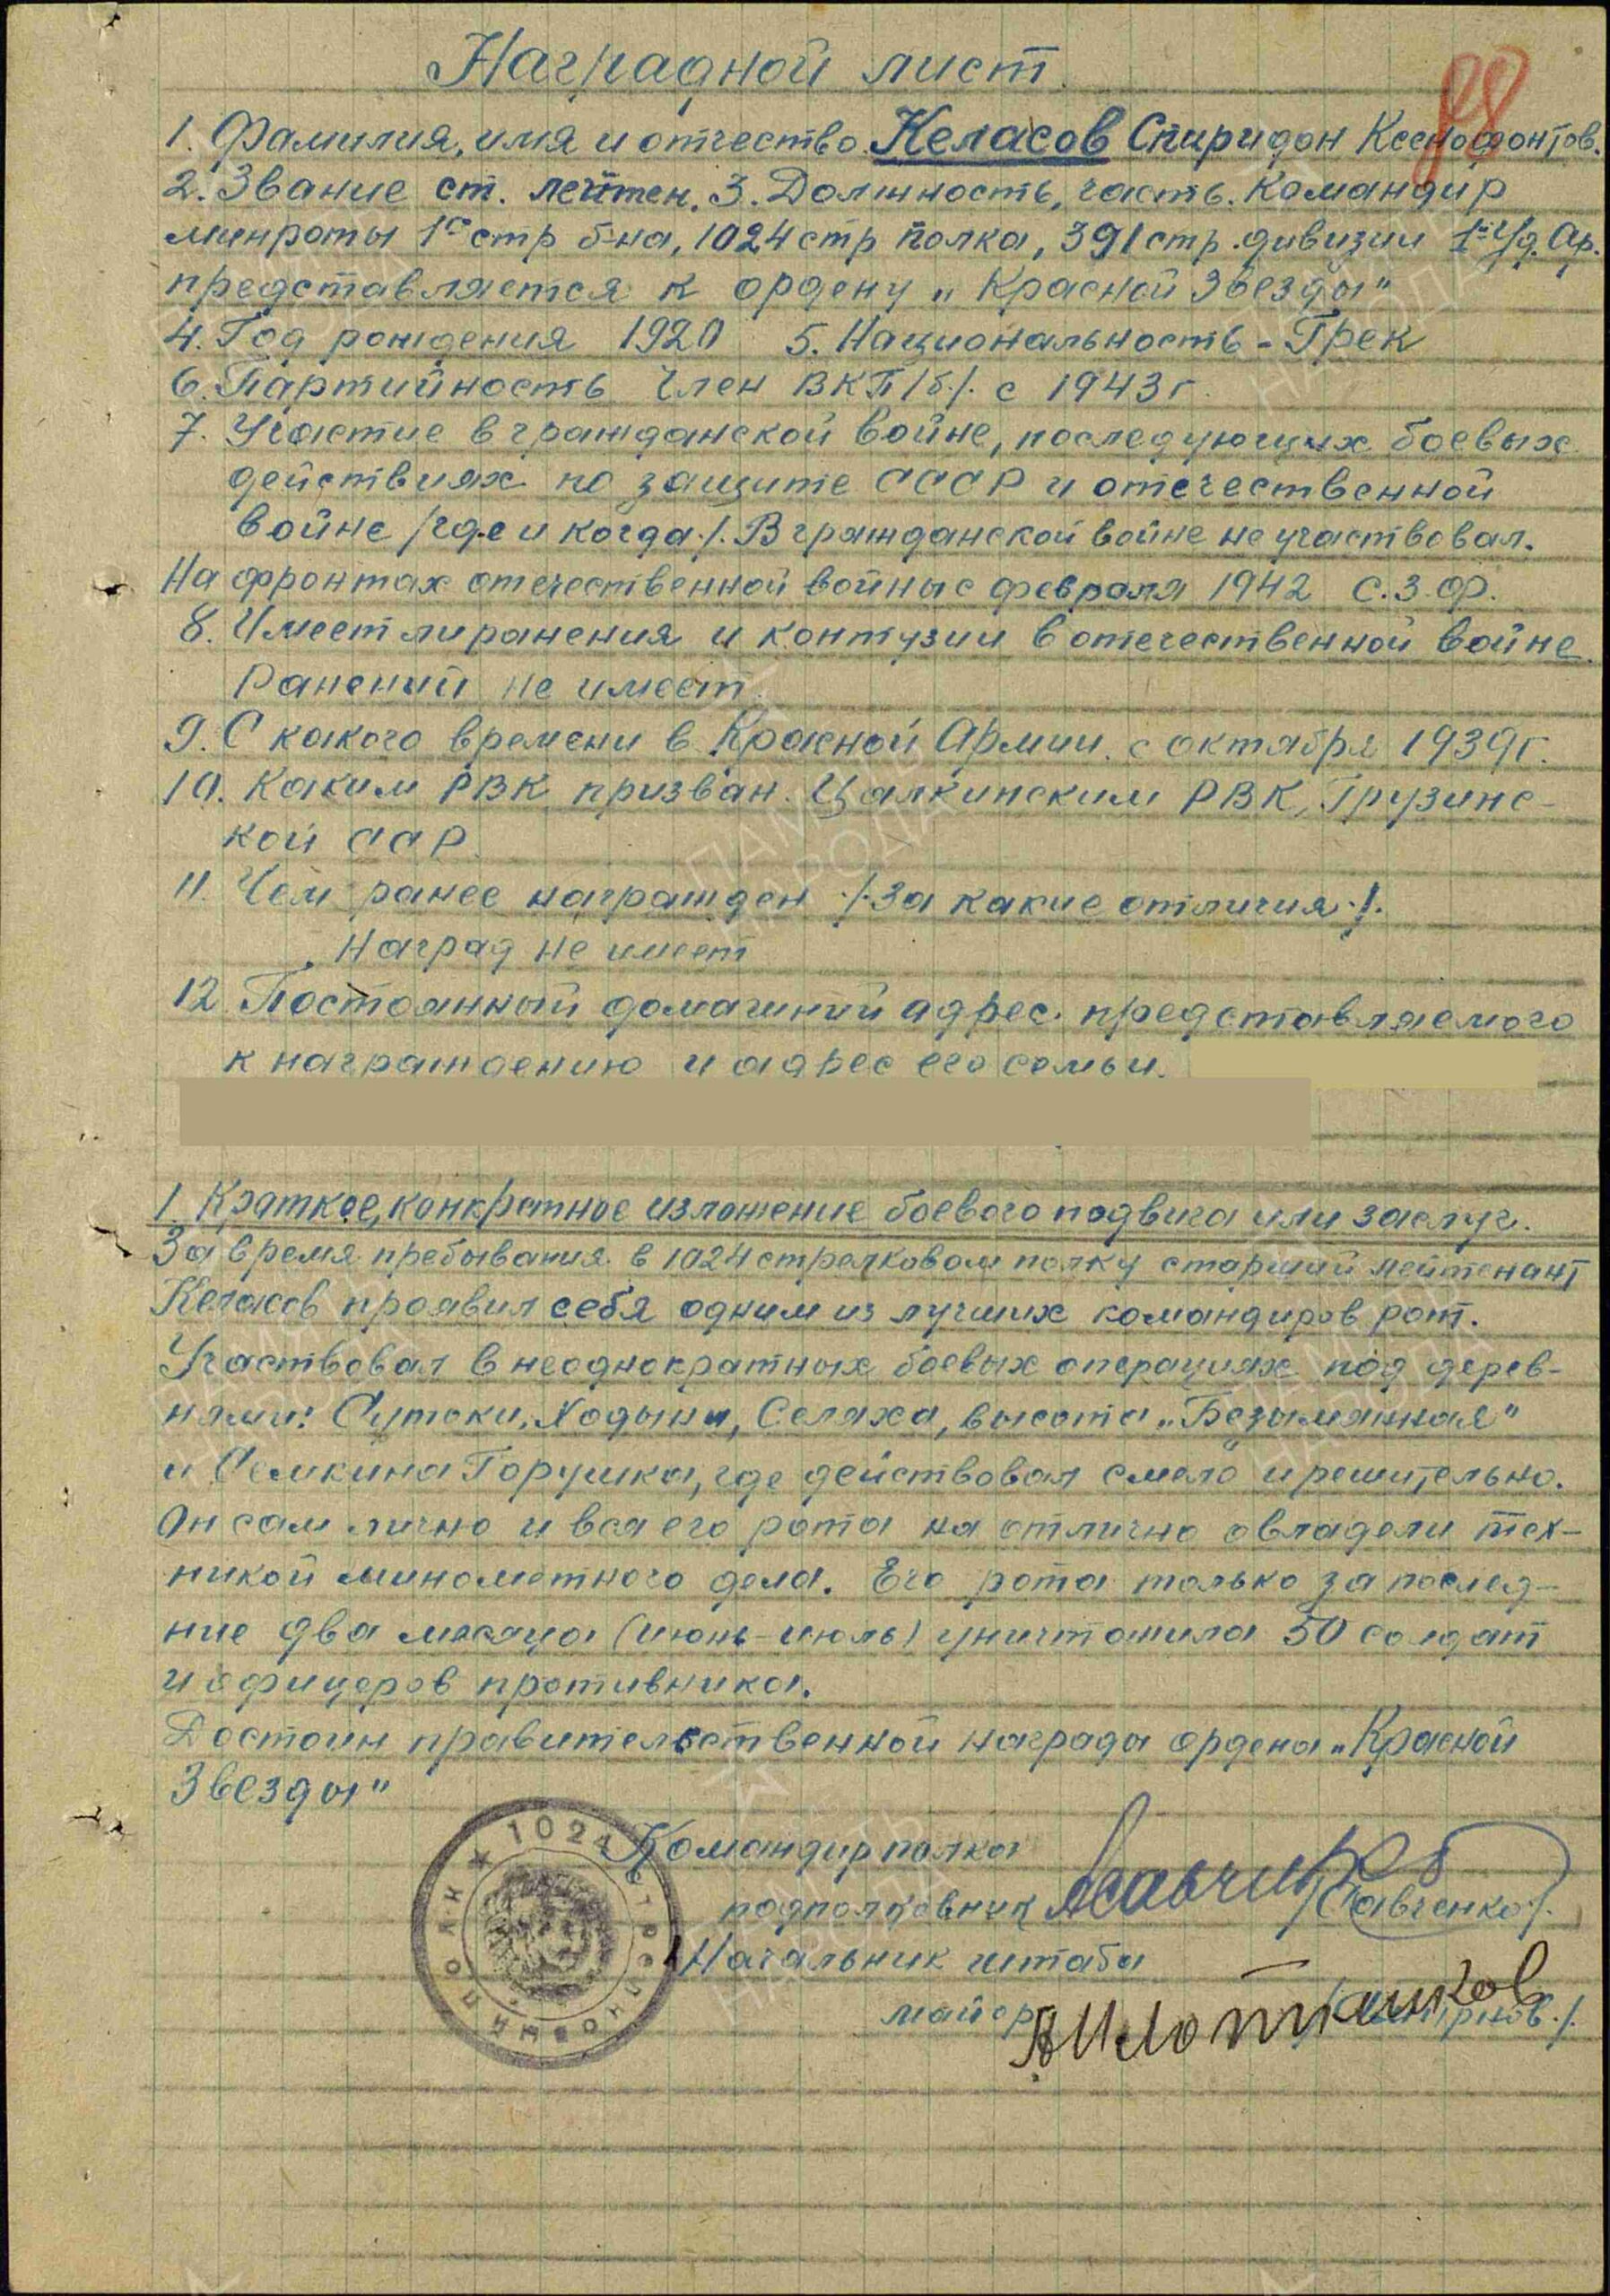 Наградной лист.
88
1. Фамилия, имя и отчество. Келасов Спиридон Ксенофонтов.
2. Звание ст. лейтен. 3. Должность, часть. Командир
минроты 1го стр б-на, 1024 стр полка, 391 стр. дивизии 1ой Уд. Ар.
представляется к ордену „Красной Звезды"
4. Год рождения 1920 5. Национальность - Грек
6. Партийность Член ВКП/б/. с 1943 г.
7. Участие в гражданской войне, последующих боевых
действиях по защите СССР и отечественной
войне /где и когда./. В гражданской войне не участвовал.
На фронтах отечественной войны с февраля 1942 С.З. ф.
8. Имеет ли ранения и контузии в отечественной войне.
Ранений не имеет.
9. С какого времени в Красной Армии. с октября 1939 г.
10. Каким РВК призван. Цалкинским РВК, Грузинс-
кой ССР.
11. Чем ранее награжден ./.за какие отличия./.
Наград не имеет
12. Постоянный домашний адрес. представляемого
к награждению и адрес его семьи.
1. Краткое, конкретное изложение боевого подвига или заслуг.
За время пребывания в 1024 стрелковом полку старший лейтенант
Келасов проявил себя одним из лучших командиров рот.
Участвовал в неоднократных боевых операциях под дерев-
нями: Сутоки, Ходыни, Селяха, высота „Безымянная"
и Семкина Горушка, где действовал смело и решительно.
Он сам лично и вся его рота на отлично овладели тех-
никой минометного дела. Его рота только за послед-
ние два месяца (июнь-июль) уничтожила 50 солдат
и офицеров противника.
Достоин правительственной награды ордена „Красной
Звезды"
Командир полка
подполковник /Савченко/.
Начальник штаба
майор
★ 1024 стрелковый полк
ПАМЯТЬ НАРОДА